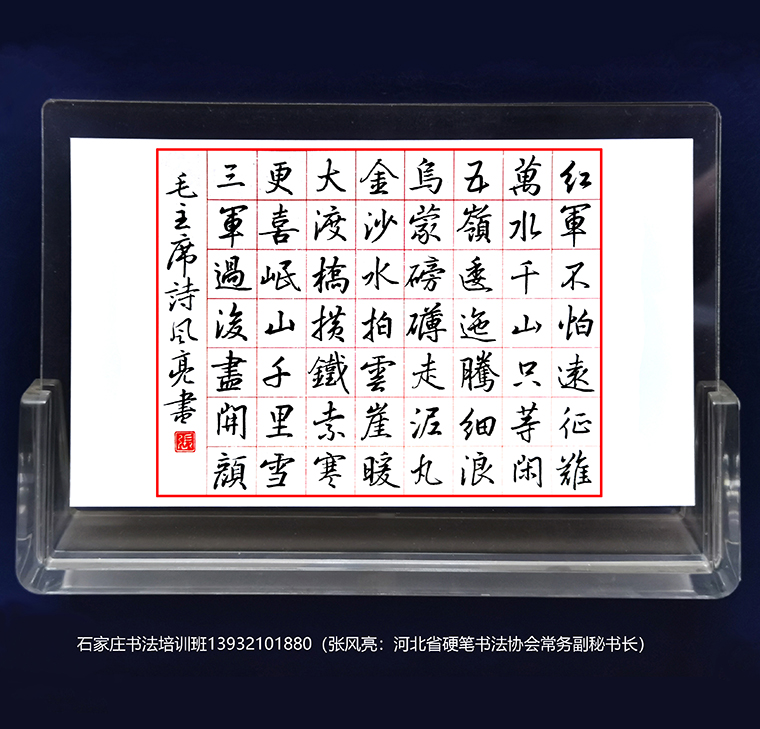 红軍不怕遠征難
萬水千山只等閑
五嶺逶迤騰細浪
烏蒙磅礴走泥丸
金沙水拍雲崖暖
大渡橋横鐵索寒
更喜岷山千里雪
三軍過後盡開顔
毛主席詩風亮書
張
石家庄书法培训班13932101880（张风亮：河北省硬笔书法协会常务副秘书长）